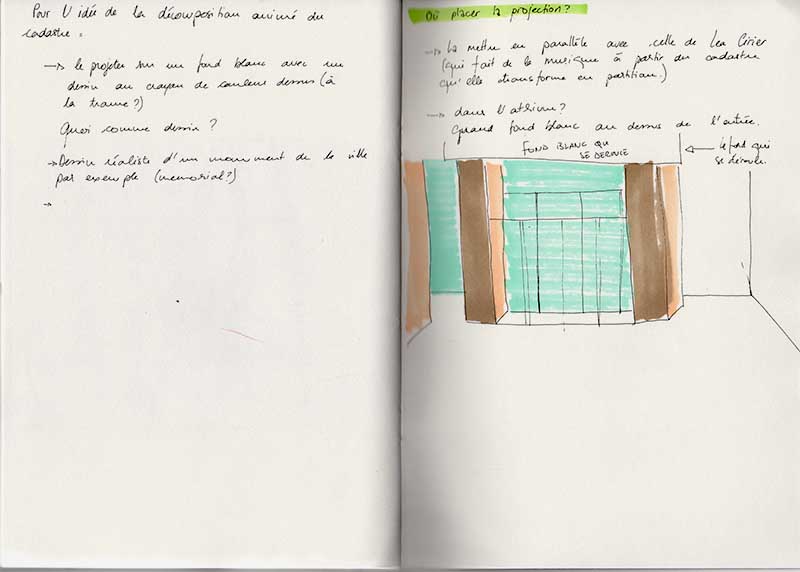 Pour l'idée de la décomposition animé du
cadastre :
→ le projeter sur un fond blanc avec un
dessin au crayon de couleur dessus (à
la trame ?)
Quoi comme dessin ?
→ Dessin réaliste d'un monument de la ville
par exemple (memorial ?)
→
Où placer la projection ?
→ La mettre en parallèle avec celle de Lea Cirier
(qui fait de la musique à partir du cadastre
qu'elle transforme en partition.)
→ dans l'atrium ?
Grand fond blanc au dessus de l'entrée.
FOND BLANC QUI
SE DEROULE
← le fond qui
se déroule.